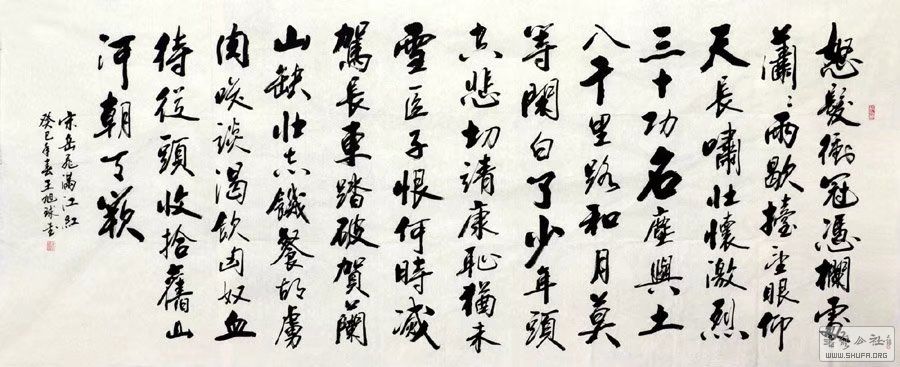 怒髮衝冠憑欄處
瀟〻雨歇擡望眼仰
天長嘯壯懷激烈
三十功名塵與土
八千里路和月莫
等閑白了少年頭
空悲切靖康恥猶未
雪臣子恨何時滅
駕長車踏破賀蘭
山缺壯志饑餐胡虜
肉笑談渴飲匈奴血
待從頭收拾舊山
河朝天闕
宋岳飛滿江紅
癸巳年春王旭書
公社
WWW.SHUFA.ORG